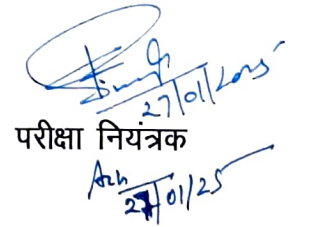 27/01/2025
परीक्षा नियंत्रक
27/01/25